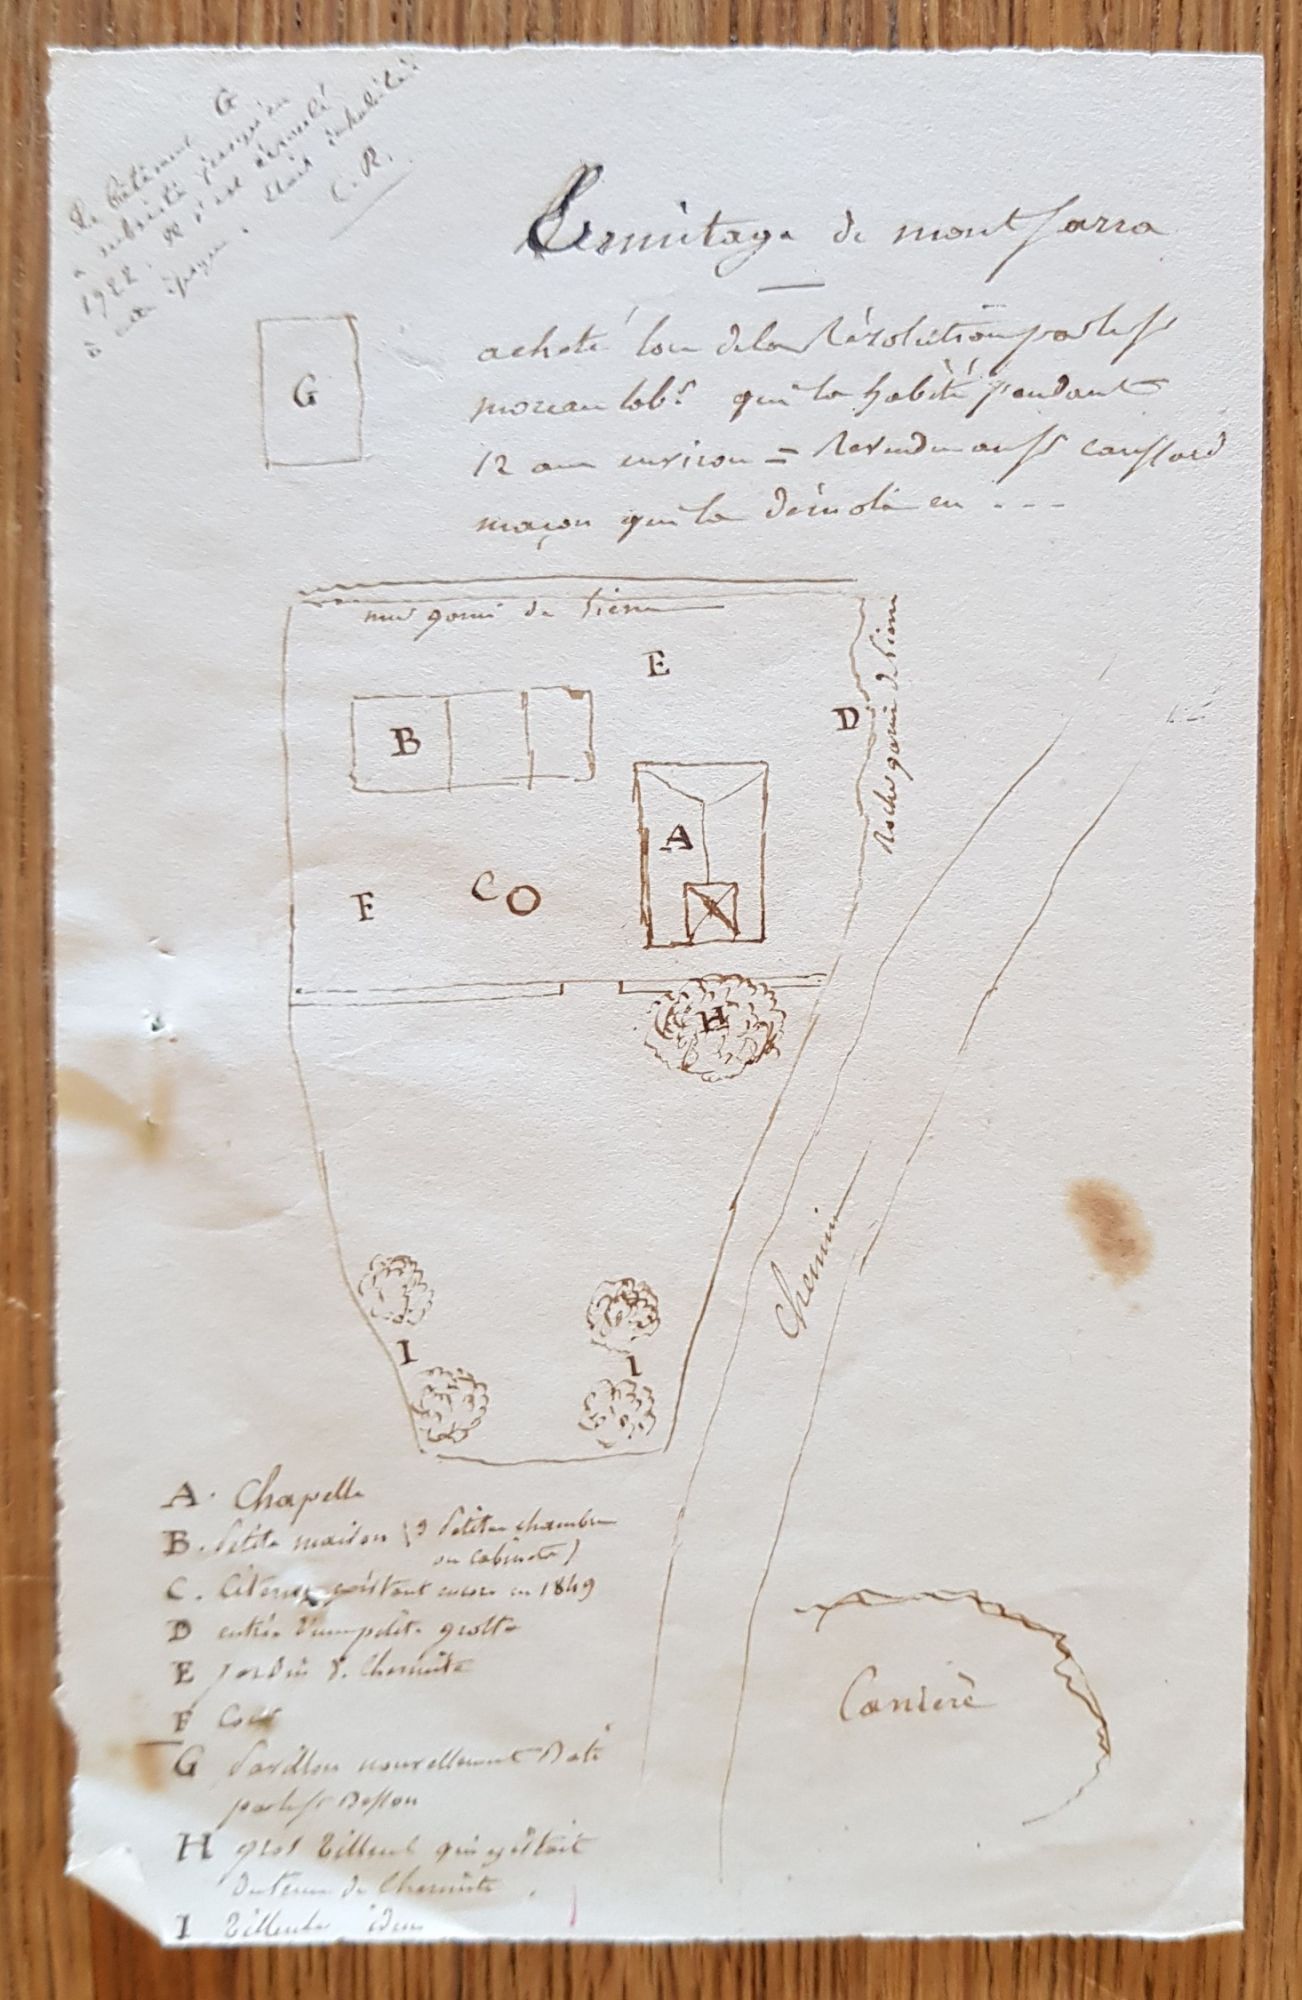 Le bâtiment G
a subsisté jusqu'en
1922. Il s'est écroulé
à cette époque. était inhabité.
C. R.
L'ermitage de montsarra
acheté lors de la Révolution par le Sr
moreau lobr qui la habité pendant
12 ans environ = Revendu au Sr caussard
maçon qui la démoli en - - -
G
mur garni de lierre
E
B
D
Roche garnie de lierre
A
F
C
H
I
I
chemin
A. Chapelle
B. petite maison (3 petites chambres
ou cabinets)
C. Citerne existant encore en 1849
D entrée d'une petite grotte
E jardin de l'hermite
F Cour
G Pavillon nouvellement Bati
par le Sr Besson
H gros Tilleul qui existait
du tems de l'hermite
I Tilleuls idem
Carrierè